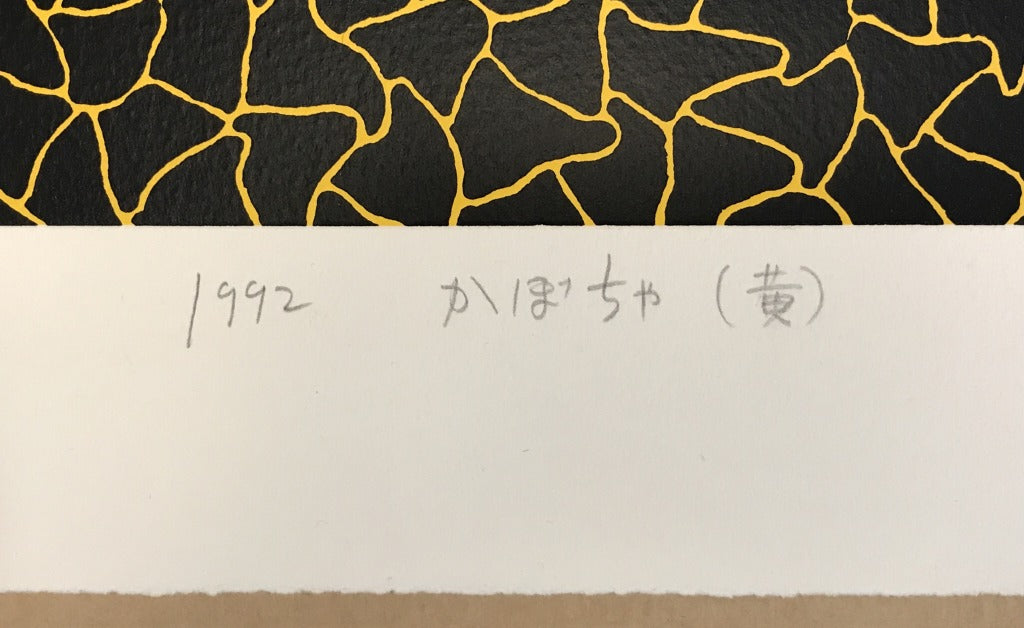 1992 かぼちゃ（黄）